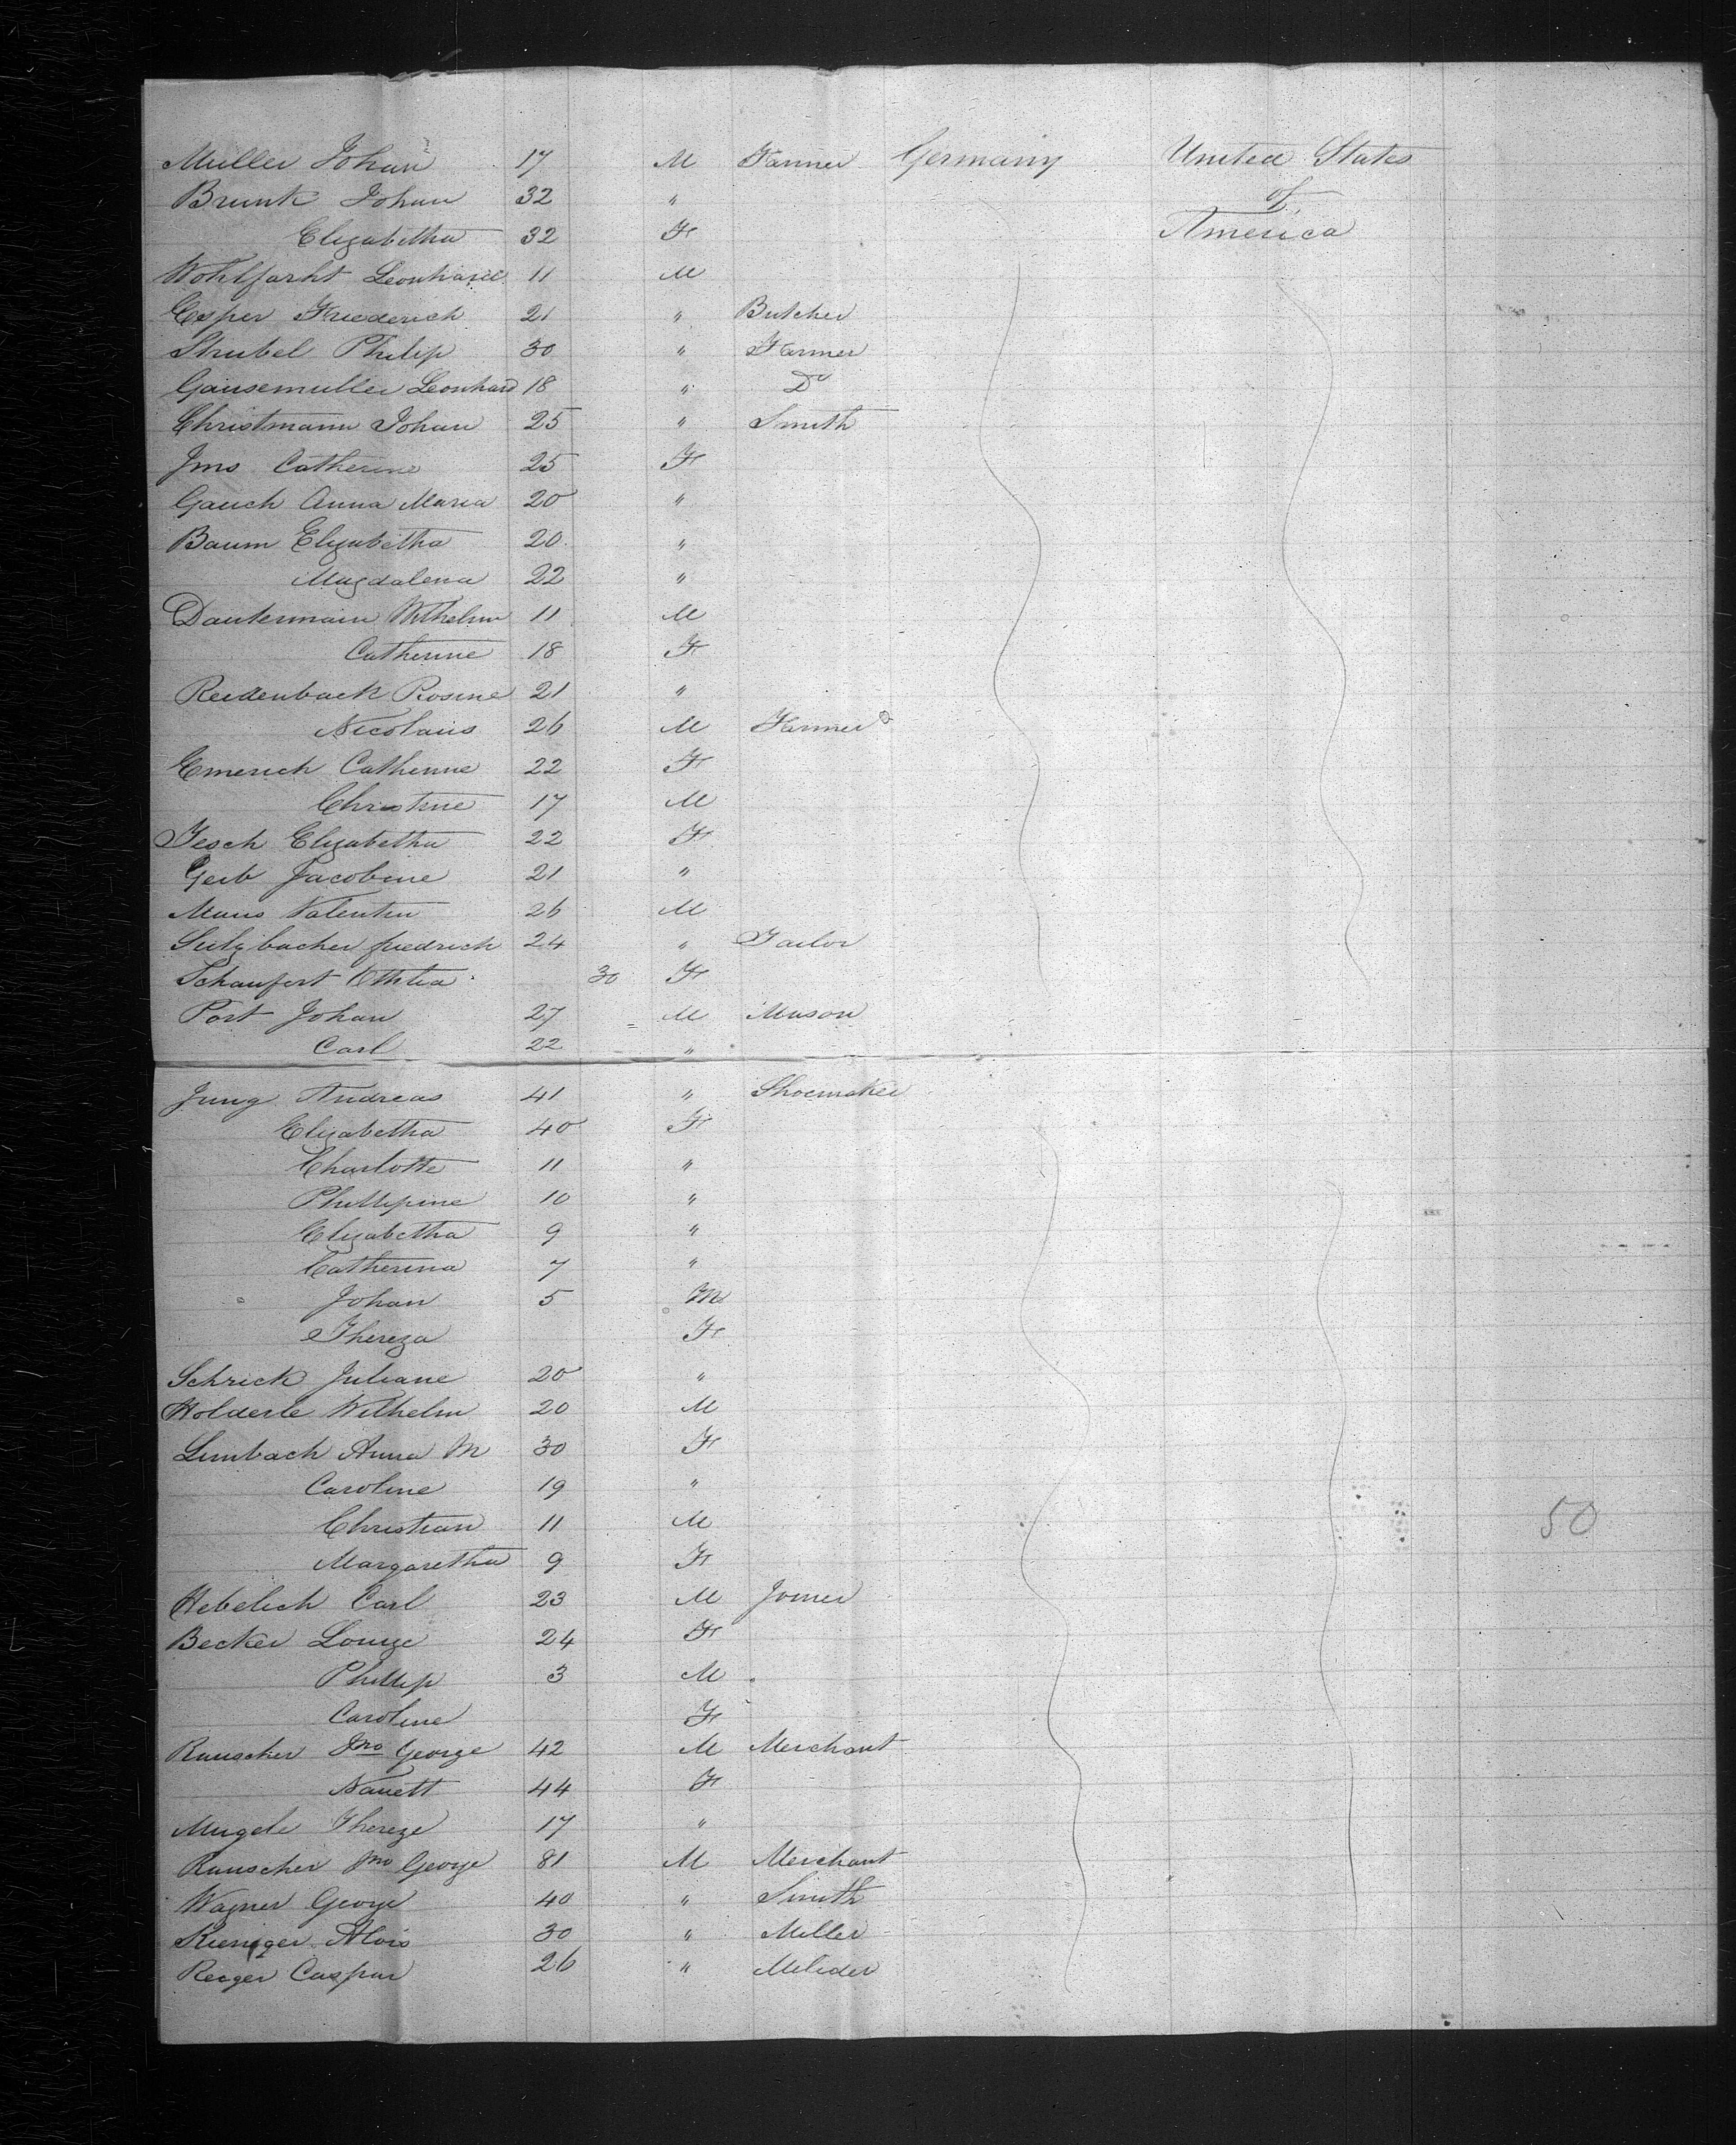 Muller Johan 17 M Farmer Germany United States
Brunk Johan 32 " of
Elizabetha 32 F America
Wohlfarht Leonhard 11 M
Esper Friederich 21 " Butcher
Strubel Philip 30 " Farmer
Gausemuller Leonhard 18 " Do
Christmann Johan 25 " Smith
Jms Catherine 25 F
Gauch Anna Maria 20 "
Baum Elizabetha 20 "
Magdalena 22 "
Dautermain Wilhelm 11 M
Catherine 18 F
Reidenback Rosine 21 "
Nicolaus 26 M Farmer
Emerich Catherine 22 F
Christine 17 M
Jesch Elizabetha 22 F
Geib Jacobine 21 "
Maus Valentin 26 M
Sulzbacher friedrich 24 " Tailor
Schaufert Ottilia 30 F
Port Johan 27 M Mason
Carl 22 "
Jung Andreas 41 " Shoemaker
Elizabetha 40 F
Charlotte 11 "
Phillipine 10 "
Elizabetha 9 "
Catherina 7 "
Johan 5 M
Thereza F
Schrick Juliane 20 "
Holderle Wilhelm 20 M
Limbach Anna M 30 F
Caroline 19 "
Christian 11 M
50
Margaretha 9 F
Hebelich Carl 23 M Joiner
Becker Louize 24 F
Phillip 3 M
Caroline F
Rauscher Jno George 42 M Merchant
Nanett 44 F
Mugele Thereze 17 "
Rauscher Jno George 81 M Merchant
Wagner George 40 " Smith
Alois 30 " Miller
Reager Caspar 26 "